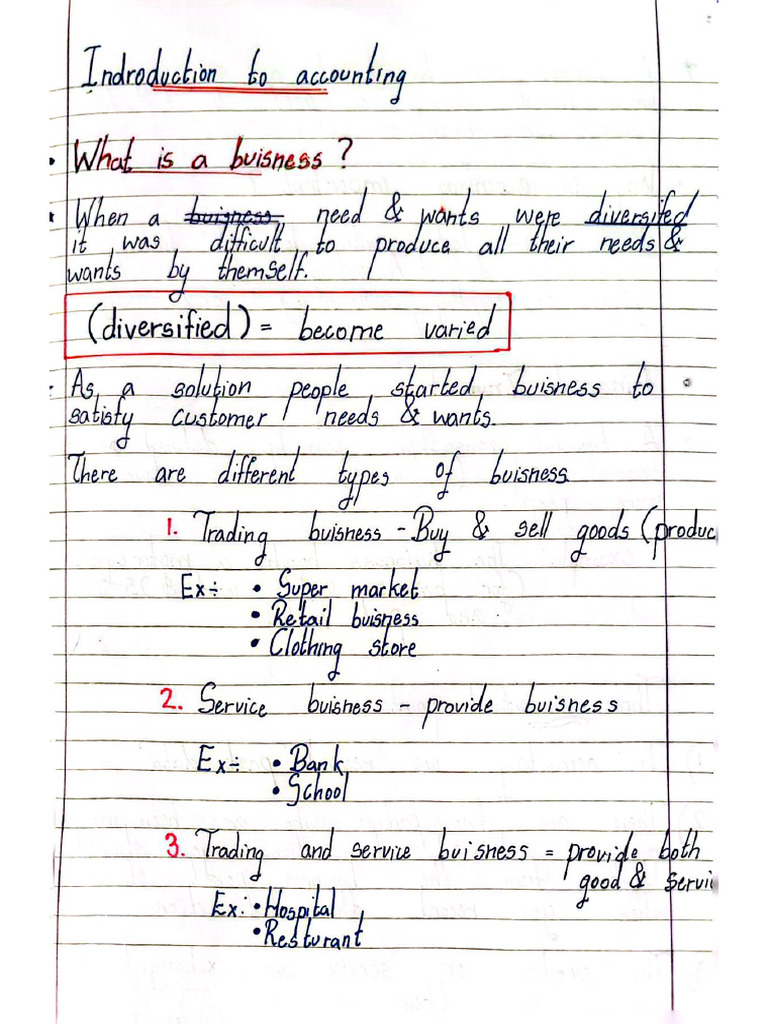 Indroduction to accounting
• What is a buisness?
• When a buisness need & wants were diversifed
it was difficult to produce all their needs &
wants by themself.
(diversified) = become varied
• As a solution people started buisness to
satisfy customer needs & wants.
There are different types of buisness
1. Trading buisness - Buy & sell goods (produc
Ex÷ • Super market
• Retail buisness
• Clothing store
2. Service buisness - provide buisness
Ex÷ • Bank
• School
3. Trading and service buisness = provide both
good & servic
Ex: • Hospital
• Resturant